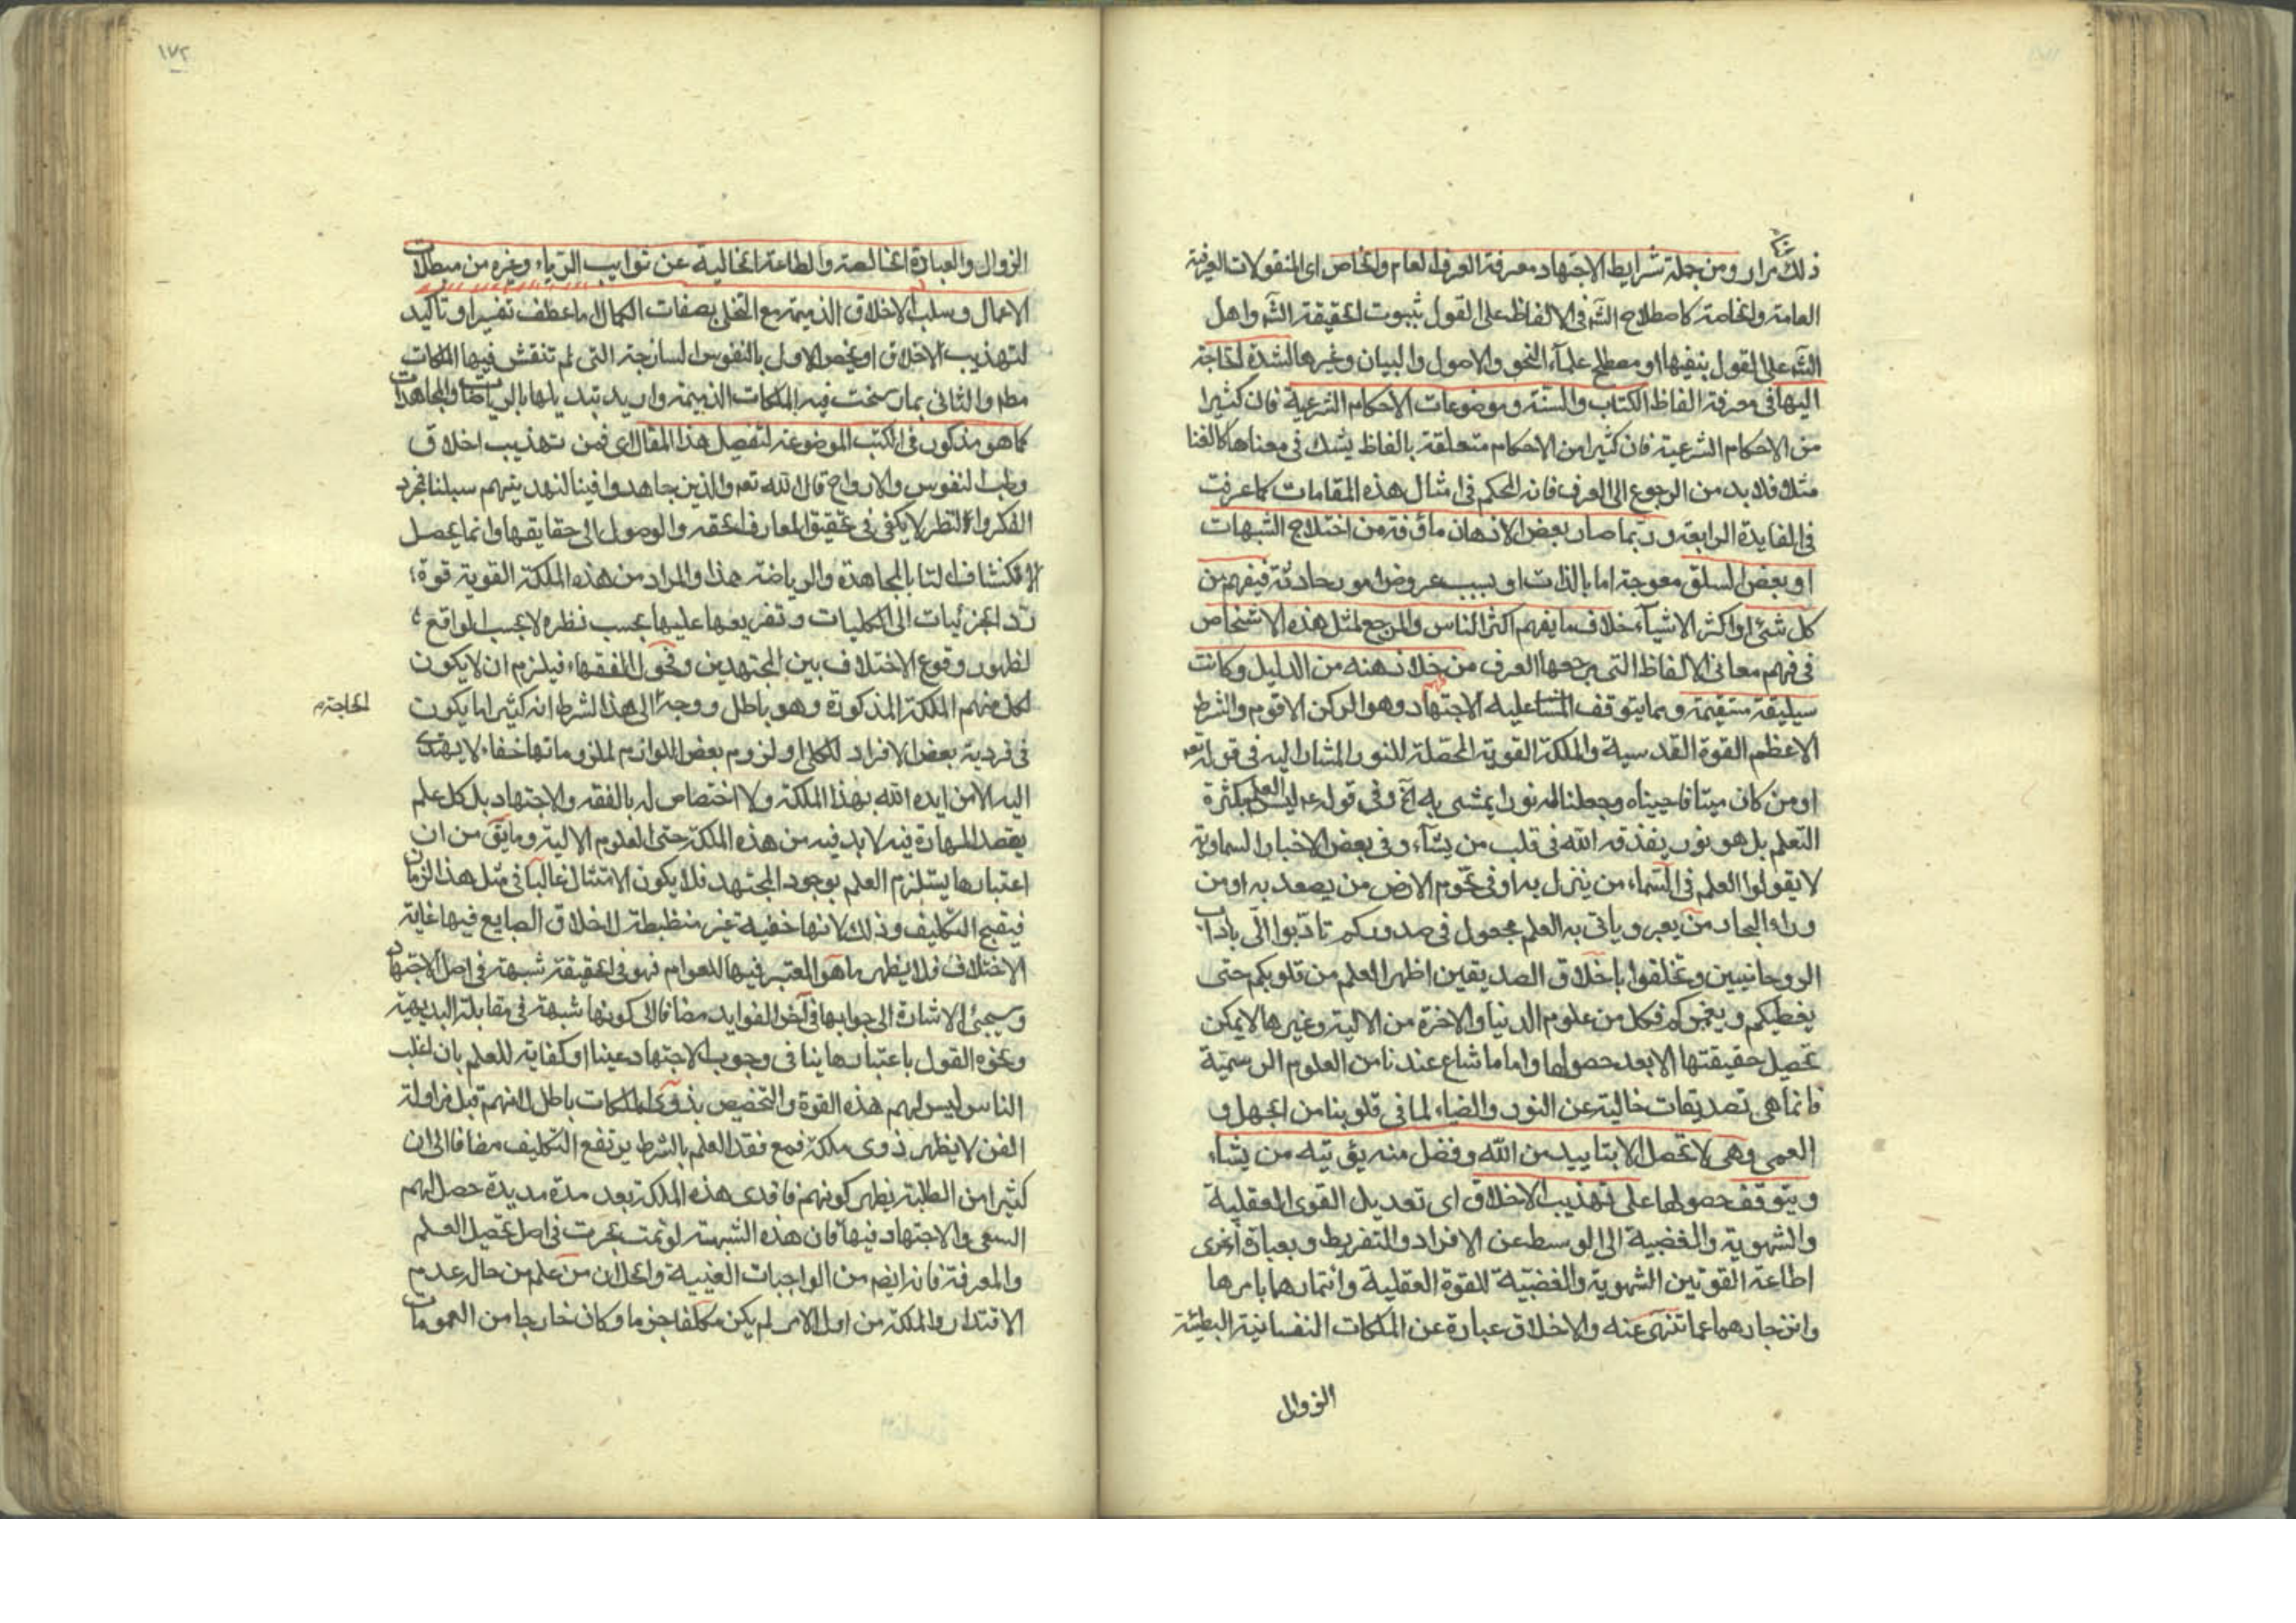 ذلك مرارا ومن جملة شرايط الاجتهاد معرفة العرف العام والخاص اى المنقولات العرفية
العامة والخاصة كاصطلاح الشه فى الالفاظ على القول بثبوت الحقيقة الشه واهل
الشه على القول بنفيها او مصطلح علماء النحو والاصول والبيان وغيرها لشدة الحاجة
اليها فى معرفة الفاظ الكتاب والسنة وموضوعات الاحكام الشرعية فان كثيرا
من الاحكام الشرعية فان كثيرا من الاحكام متعلقة بالفاظ يشك فى معناها كالغنا
مثلا فلا بد من الرجوع الى العرف فانه المحكم فى امثال هذه المقامات كما عرفت
فى الفايدة الرابعة وربما صار بعض الاذهان ماؤفة من اختلاج الشبهات
او بعض السلق معوجة اما بالذات او بسبب عروض امور حادثة فيفهم من
كل شئ او اكثر الاشياء خلاف ما يفهم اكثر الناس والمرجع لمثل هذه الاشخاص
فى فهم معانى الالفاظ التى مرجعها العرف من خلا ذهنه من الدليل وكانت
سيليقة مستقيمة ومما يتوقف عليه الاجتهاد وهو الركن الاقوم والشرط
الاعظم القوة القدسية والملكة القوية المحصّلة للنور المشار اليه فى قوله تعه
او من كان ميتا فاحييناه وجعلنا له نورا يمشى به آخ وفى قوله عه ليس العلم بكثرة
التعلم بل هو نور يقذفه الله فى قلب من يشآء وفى بعض الاخبار السماوية
لا يقولوا العلم فى السّماء من ينزل به او فى تخوم الارض من يصعد به او من
وراء البحار من يعبر وياتى به العلم مجعول فى صدوركم تادّبوا الىّ باداب
الروحانيين وتخلقوا باخلاق الصديقين اظهر العلم من قلوبكم حتى
يغطيكم ويغمركم فكل من علوم الدنيا والاخرة من الالية وغيرها لا يمكن
تحصيل حقيقتها الا بعد حصولها واما ما شاع عندنا من العلوم الرسميّة
فانما هى تصديقات خالية عن النور والضياء لما فى قلوبنا من الجهل و
العمى وهى لا تحصل الا بتاييد من الله وفضل منه يؤتيه من يشاء
ويتوقف حصولها على تهذيب الاخلاق اى تعديل القوى العقلية
والشهوية والغضبية الى الوسط عن الافراد والتفريط وبعبارة اخرى
اطاعة القوتين الشهوية والغضبيّة للقوة العقلية وائتمارها بامرها
وانزجارهما عما تنهى عنه والاخلاق عبارة عن الملكات النفسانية البطيئة
الزوال
١٧٢
الزوال والعبادة الخالصة والطاعة الخالية عن شوايب الرّياء وغيره من مبطلات
الاعمال وسلب الاخلاق الذميمة مع التحلى بصفات الكمال اما عطف تفسير او تاكيد
لتهذيب الاخلاق او يخص الاول بالنفوس الساذجة التى لم تنقش فيها الملكات
مطم والثانى بما رسخت فيه الملكات الذميمة واريد تبديلها بالرياضات والمجاهدات
كما هو مذكور فى الكتب الموضوعة لتفصيل هذا المقال اى فمن تهذيب اخلاق
وطب النفوس والارواح قال الله تعه والذين جاهدوا فينا لنهدينهم سبلنا فمجرد
الفكر والنظر لا يكفى فى تحقيق المعارف الحقه والوصول الى حقايقها وانما يحصل
الانكشاف لنا بالمجاهدة والرياضة هذا والمراد من هذه الملكة القوية قوة
رد الجزئيات الى الكليات وتفريعها عليها بحسب نظره لا بحسب الواقع
لظهور وقوع الاختلاف بين المجتهدين وفحول الفقهاء فيلزم ان لا يكون
لكل منهم الملكة المذكورة وهو باطل ووجه الى هذا الشرط انه كثيرا ما يكون
الحاجة م
فى فردية بعض الافراد للكلى او لزوم بعض اللوازم لملزوماتها خفاء لا يهتدى
اليه الا من ايده الله بهذا الملكة ولا اختصاص له بالفقه والاجتهاد بل كل علم
يقصد المهارة فيه لا بد فيه من هذه الملكة حتى العلوم الالية وما يق من ان
اعتبارها يستلزم العلم بوجود المجتهد فلا يكون الامتثال غالبا فى مثل هذا الزمان
فيقبح التكليف وذلك لانها خفية غير منظبطة لاختلاف الصايع فيها غاية
الاختلاف فلا يظهر ما هو المعتبر فيها للعوام فهو فى الحقيقة شبهة فى اصل الاجتهاد
وسيجئ الاشارة الى جوابها فى آخر الفوايد مضافا الى كونها شبهة فى مقابلة البديهية
ونحوه القول باعتبارها ينافى وجوب الاجتهاد عينا او كفاية للعلم بان اغلب
الناس ليس لهم هذه القوة والتخصيص بذوى الملكات باطل لانهم قبل مزاولة
الفن لا يظهر ذوى ملكة فمع فقد العلم بالشرط يرتفع التكليف مضافا الى ان
كثيرا من الطلبة يظهر كونهم فاقدى هذه الملكة بعد مدة مديدة حصل لهم
السعى والاجتهاد فيها فان هذه الشبهة لو تمت بجرت فى اصل تحصيل العلم
والمعرفة فانه ايضم من الواجبات العينية والحال ان من علم من حاله عدم
الاقتدار والملكة من اول الامر لم يكن مكلفا جزما وكان خارجا من العمومات